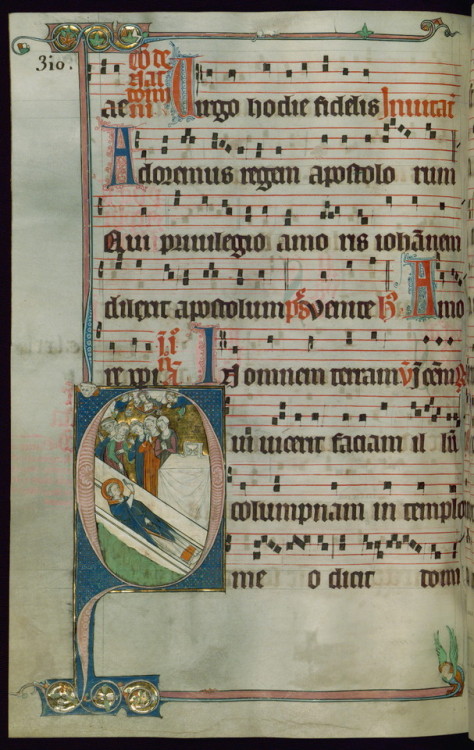 310.
ae Virgo hodie fidelis Inuitat
Adoremus regem apostolo rum
Qui priuilegio amo ris iohānem
dilexit apostolum ps Venite Amo
re xpi In omnem terram
Qui uicerit faciam il lū
columpnam in templo
me o dicit domi